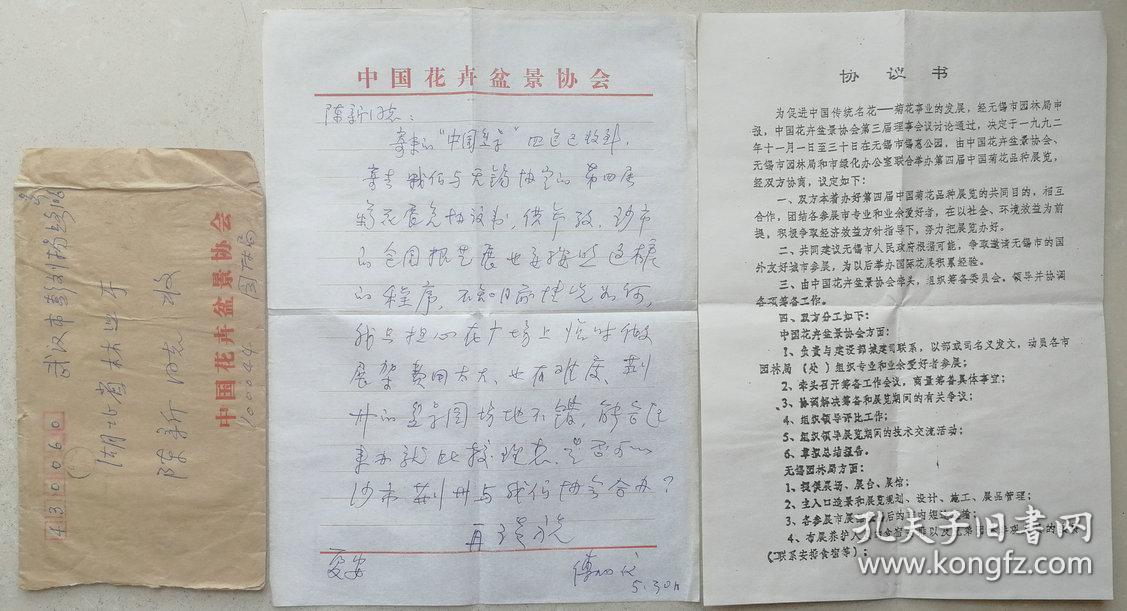 430060
武汉市
湖北省林业厅
陈新同志 收
中国花卉盆景协会
100044
中国花卉盆景协会
陈新同志：
寄来的“中国盆景”四包已收到，
寄去我们与无锡协定的第四届
菊花展览协议书，供参考，沙市
的全国根艺展也要按照这样
的程序，不知目前情况如何，
我只担心在广场上临时做
展架费用太大，也有难度，荆
州的盆景园场地不错，能否迁
来办就比较理想，是否可以
沙市荆州与我们协会合办？
再谈 祝
夏安
5.30日
协议书
为促进中国传统名花——菊花事业的发展，经无锡市园林局申
报，中国花卉盆景协会第三届理事会议讨论通过，决定于一九九二
年十一月一日至三十日在无锡市锡惠公园，由中国花卉盆景协会、
无锡市园林局和市绿化办公室联合举办第四届中国菊花品种展览，
经双方协商，议定如下：
一、双方本着办好第四届中国菊花品种展览的共同目的，相互
合作，团结各参展市专业和业余爱好者，在以社会、环境效益为前
提，积极争取经济效益方针指导下，努力把展览办好。
二、共同建议无锡市人民政府根据可能，争取邀请无锡市的国
外友好城市参展，为以后举办国际花展积累经验。
三、由中国花卉盆景协会牵头，组织筹备委员会。领导并协调
各项筹备工作。
四、双方分工如下：
中国花卉盆景协会方面：
1、负责与建设部城建司联系，以部或司名义发文，动员各市
园林局（处）组织专业和业余爱好者参展；
2、牵头召开筹备工作会议，商量筹备具体事宜；
3、协调解决筹备和展览期间的有关争议；
4、组织领导评比工作；
5、组织领导展览期间的技术交流活动；
6、草拟总结报告。
无锡园林局方面：
1、提供展场、展台、展馆；
2、主入口造景和展览规划、设计、施工、展品管理；
3、各参展市展
4、布展养护人
（联系安排食宿等）；
孔夫子旧书网
www.kongfz.com